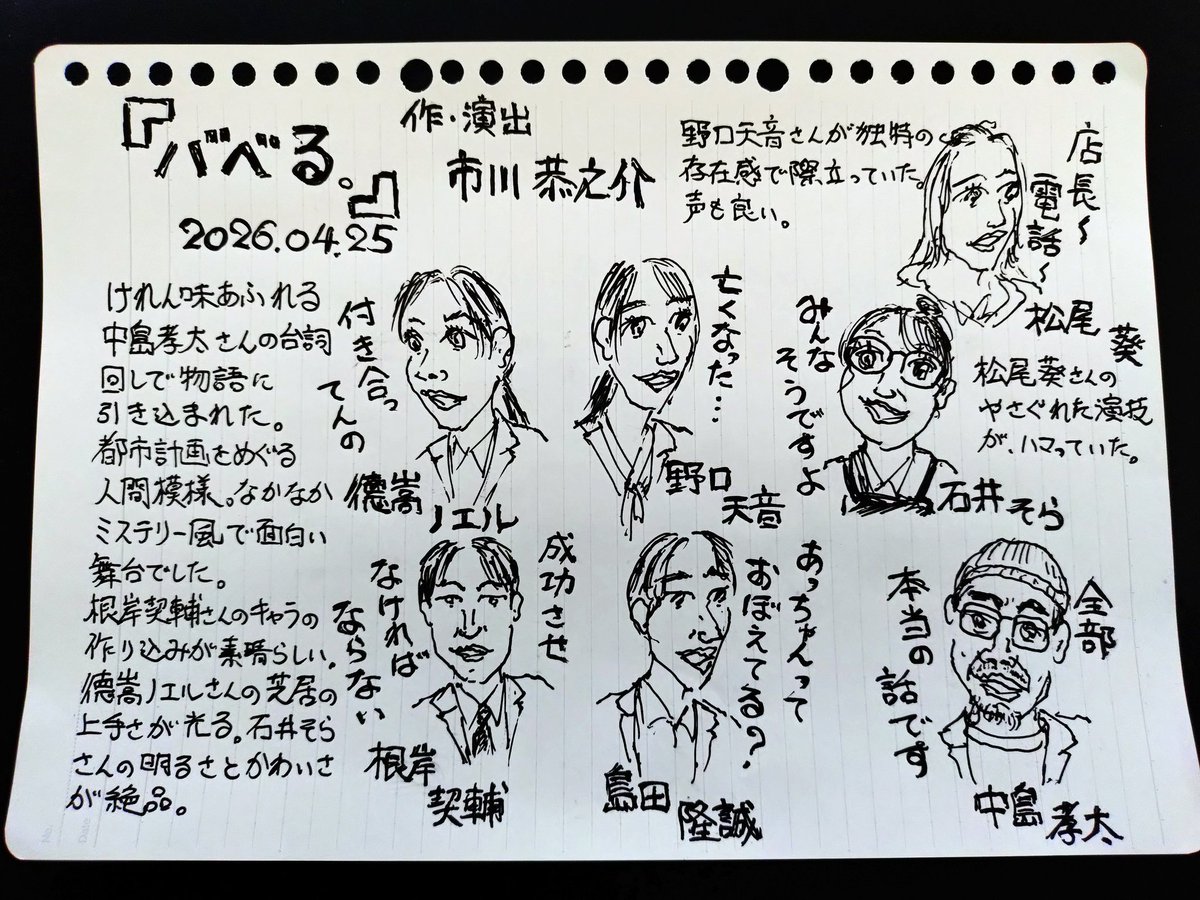 『バベる。』
2026.04.25
作・演出
市川 恭之介
けれん味あふれる
中島孝太さんの台詞
回しで物語に
引き込まれた。
都市計画をめぐる
人間模様。なかなか
ミステリー風で面白い
舞台でした。
根岸契輔さんのキャラの
作り込みが素晴らしい。
徳嵩ノエルさんの芝居の
上手さが光る。石井そら
さんの明るさとかわいさ
が絶品。
野口天音さんが独特の
存在感で際立っていた。
声も良い。
店長～
電話～
松尾
葵
松尾葵さんの
やさぐれた演技
が、ハマっていた。
付き合っ
てんの
徳嵩
ノエル
亡くなった…
野口
天音
みんな
そうですよ
石井そら
成功させ
なければ
ならない
根岸
契輔
あっちゃんって
おぼえてる？
島田
隆誠
全部
本当の
話です
中島
孝太
No.
Date